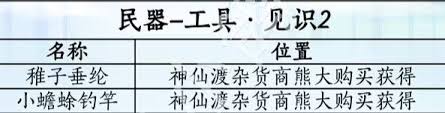 民器-工具·见识2
名称 位置
稚子垂纶 神仙渡杂货商熊大购买获得
小蟾蜍钓竿 神仙渡杂货商熊大购买获得